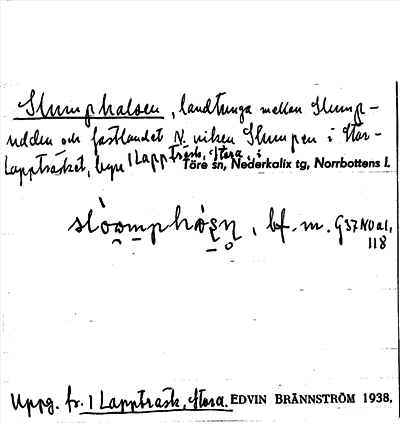 Slumphalsen, landtunga mellan Slump-
udden och fastlandet N. viken Slumpen i Stor-
Lappträsket, byn 1 Lappträsk, Stora, i
Töre sn, Nederkalix tg, Norrbottens l.
bf. m. G37 N0a1,
118
Uppg. fr. 1 Lappträsk, Stora. EDVIN BRÄNNSTRÖM 1938.